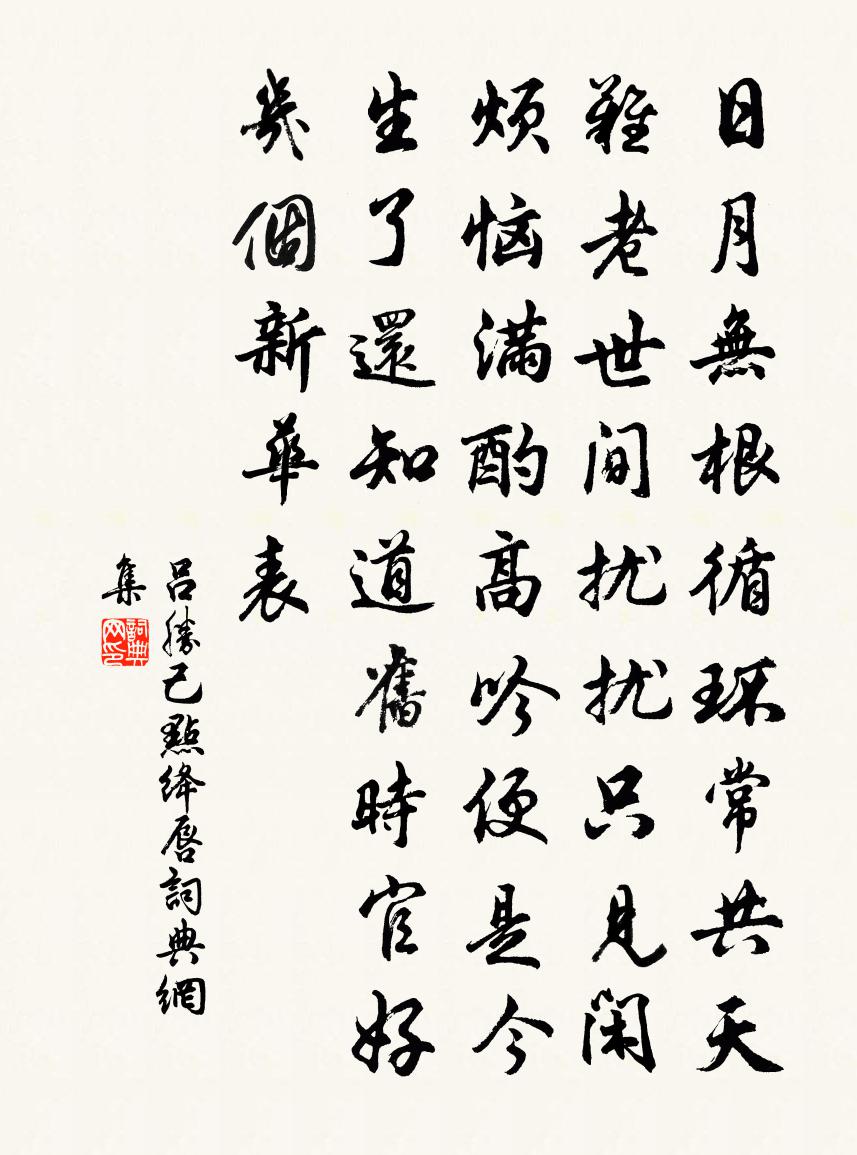 日月無根循环常共天
難老世间扰扰只見闲
烦恼满酌高吟便是今
生了還知道舊時官好
幾個新華表
吕勝己點绛唇詞典網
集
詞典
网印